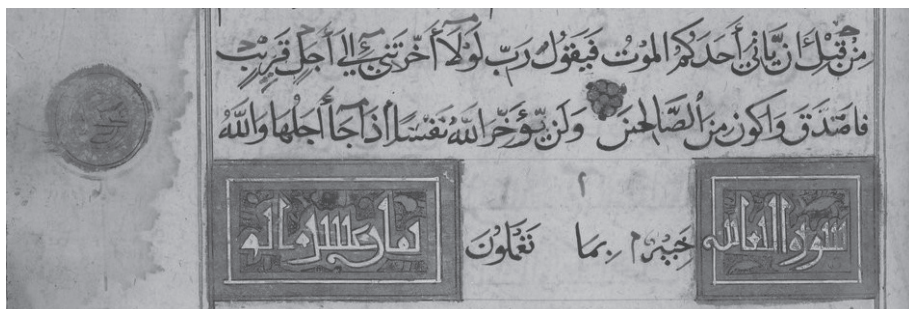 مِنْ قَبْلِ اَنْ يَّاتِيَ أَحَدَكُمُ الْمَوْتُ فَيَقُولُ رَبِّ لَوْلَا أَخَّرْتَنِي إِلَى أَجَلٍ قَرِيبٍ
فَاصَّدَّقَ وَاكُونَ مِنَ الصَّالِحِينَ وَلَنْ يُّؤَخِّرَ اللَّهُ نَفْسًا اِذَا جَا أَجَلُهَا وَاللَّهُ
سورة التغابن خَبِيرٌ بِمَا تَعْمَلُونَ